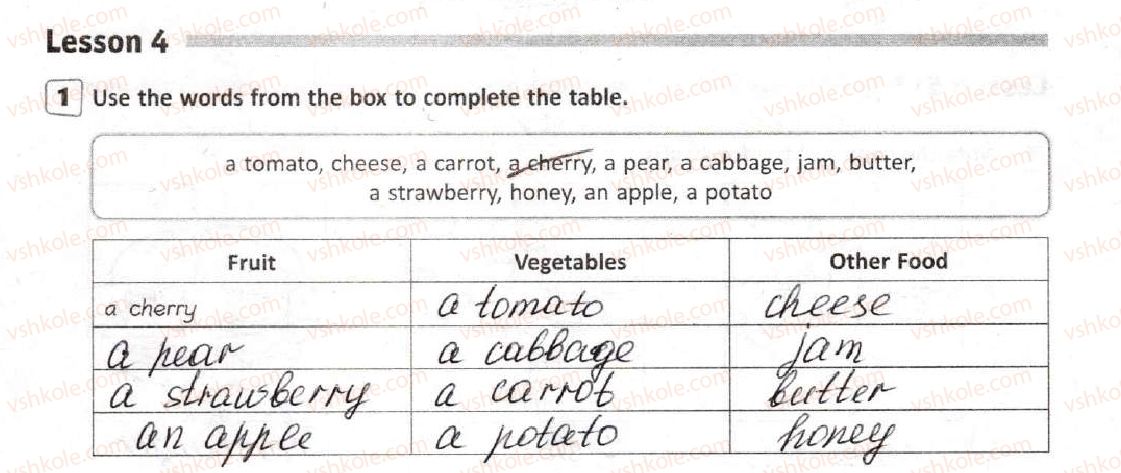 Lesson 4
1 Use the words from the box to complete the table.
a tomato, cheese, a carrot, a cherry, a pear, a cabbage, jam, butter,
a strawberry, honey, an apple, a potato
Fruit Vegetables Other Food
a cherry a tomato cheese
a pear a cabbage jam
a strawberry a carrot butter
an apple a potato honey
vshkole.com